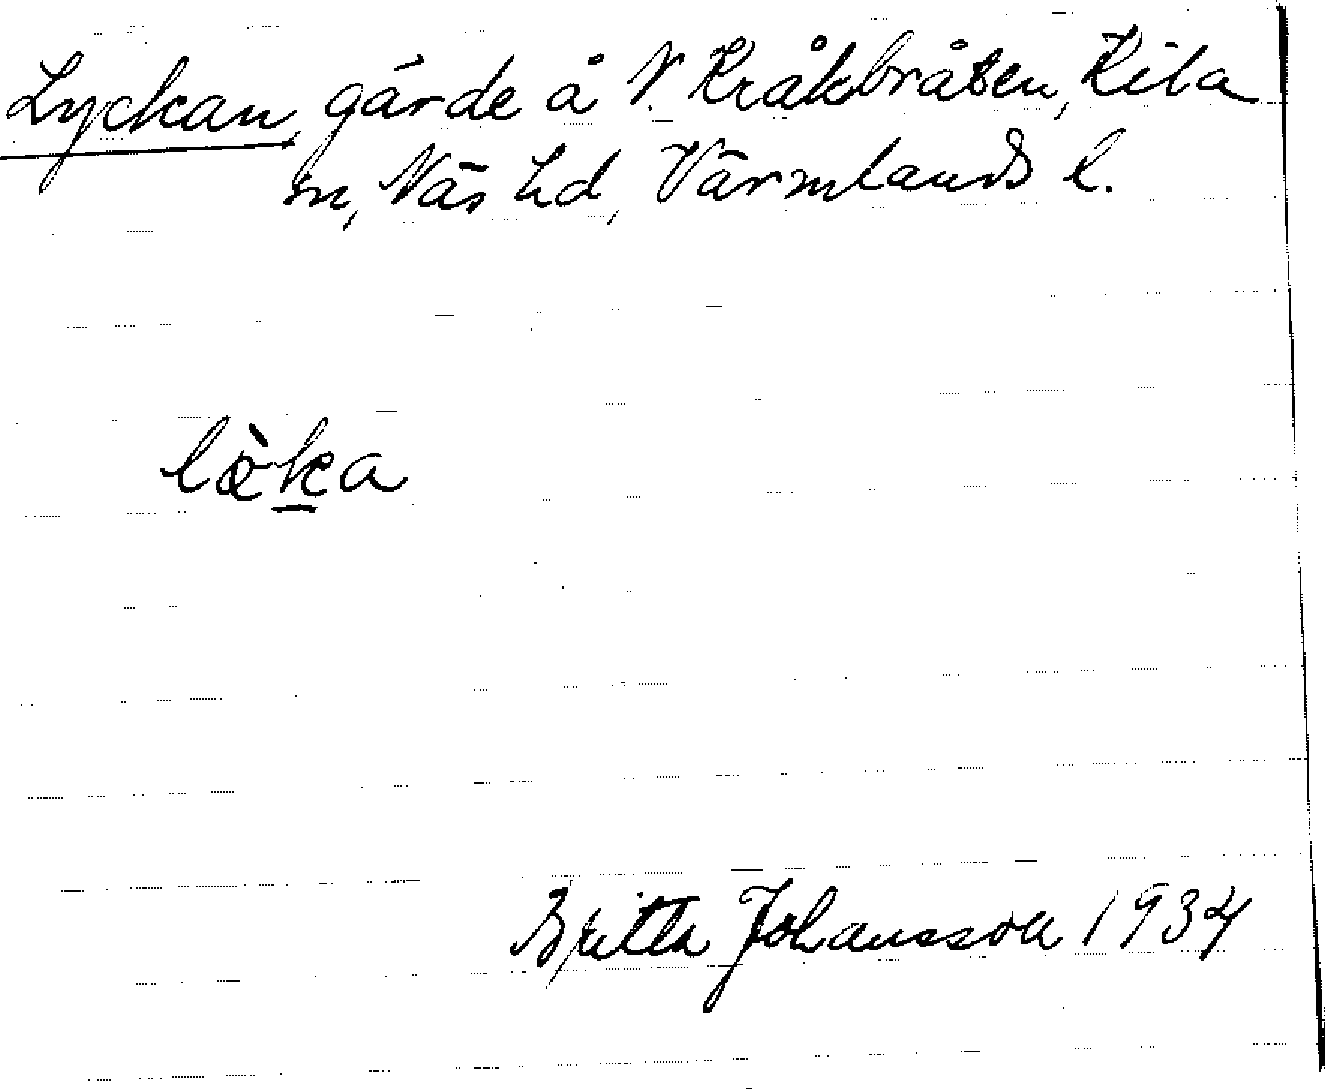 Lyckan, gärde å V. Kråkbråten, Kila
sn, Näs hd, Värmlands l.
lö̀ka
Britta Johansson 1934